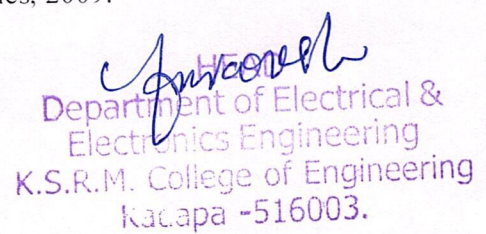 2009.
Department of Electrical &
Electronics Engineering
K.S.R.M. College of Engineering
Kadapa -516003.